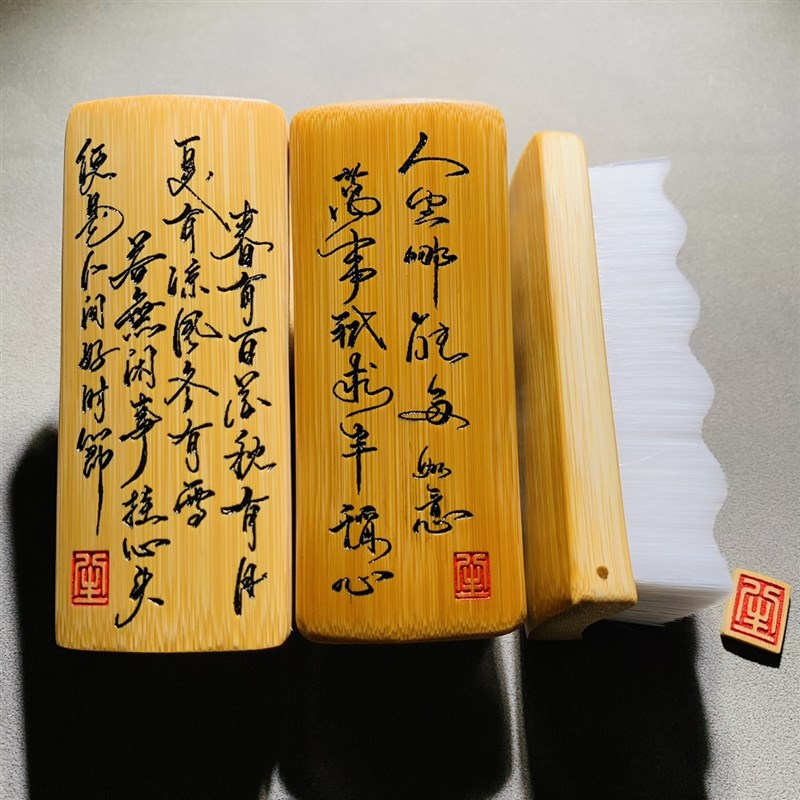 春有百花秋有月
夏有涼風冬有雪
若無闲事挂心头
便是人间好时節
人生哪能每如意
萬事祇求半稱心